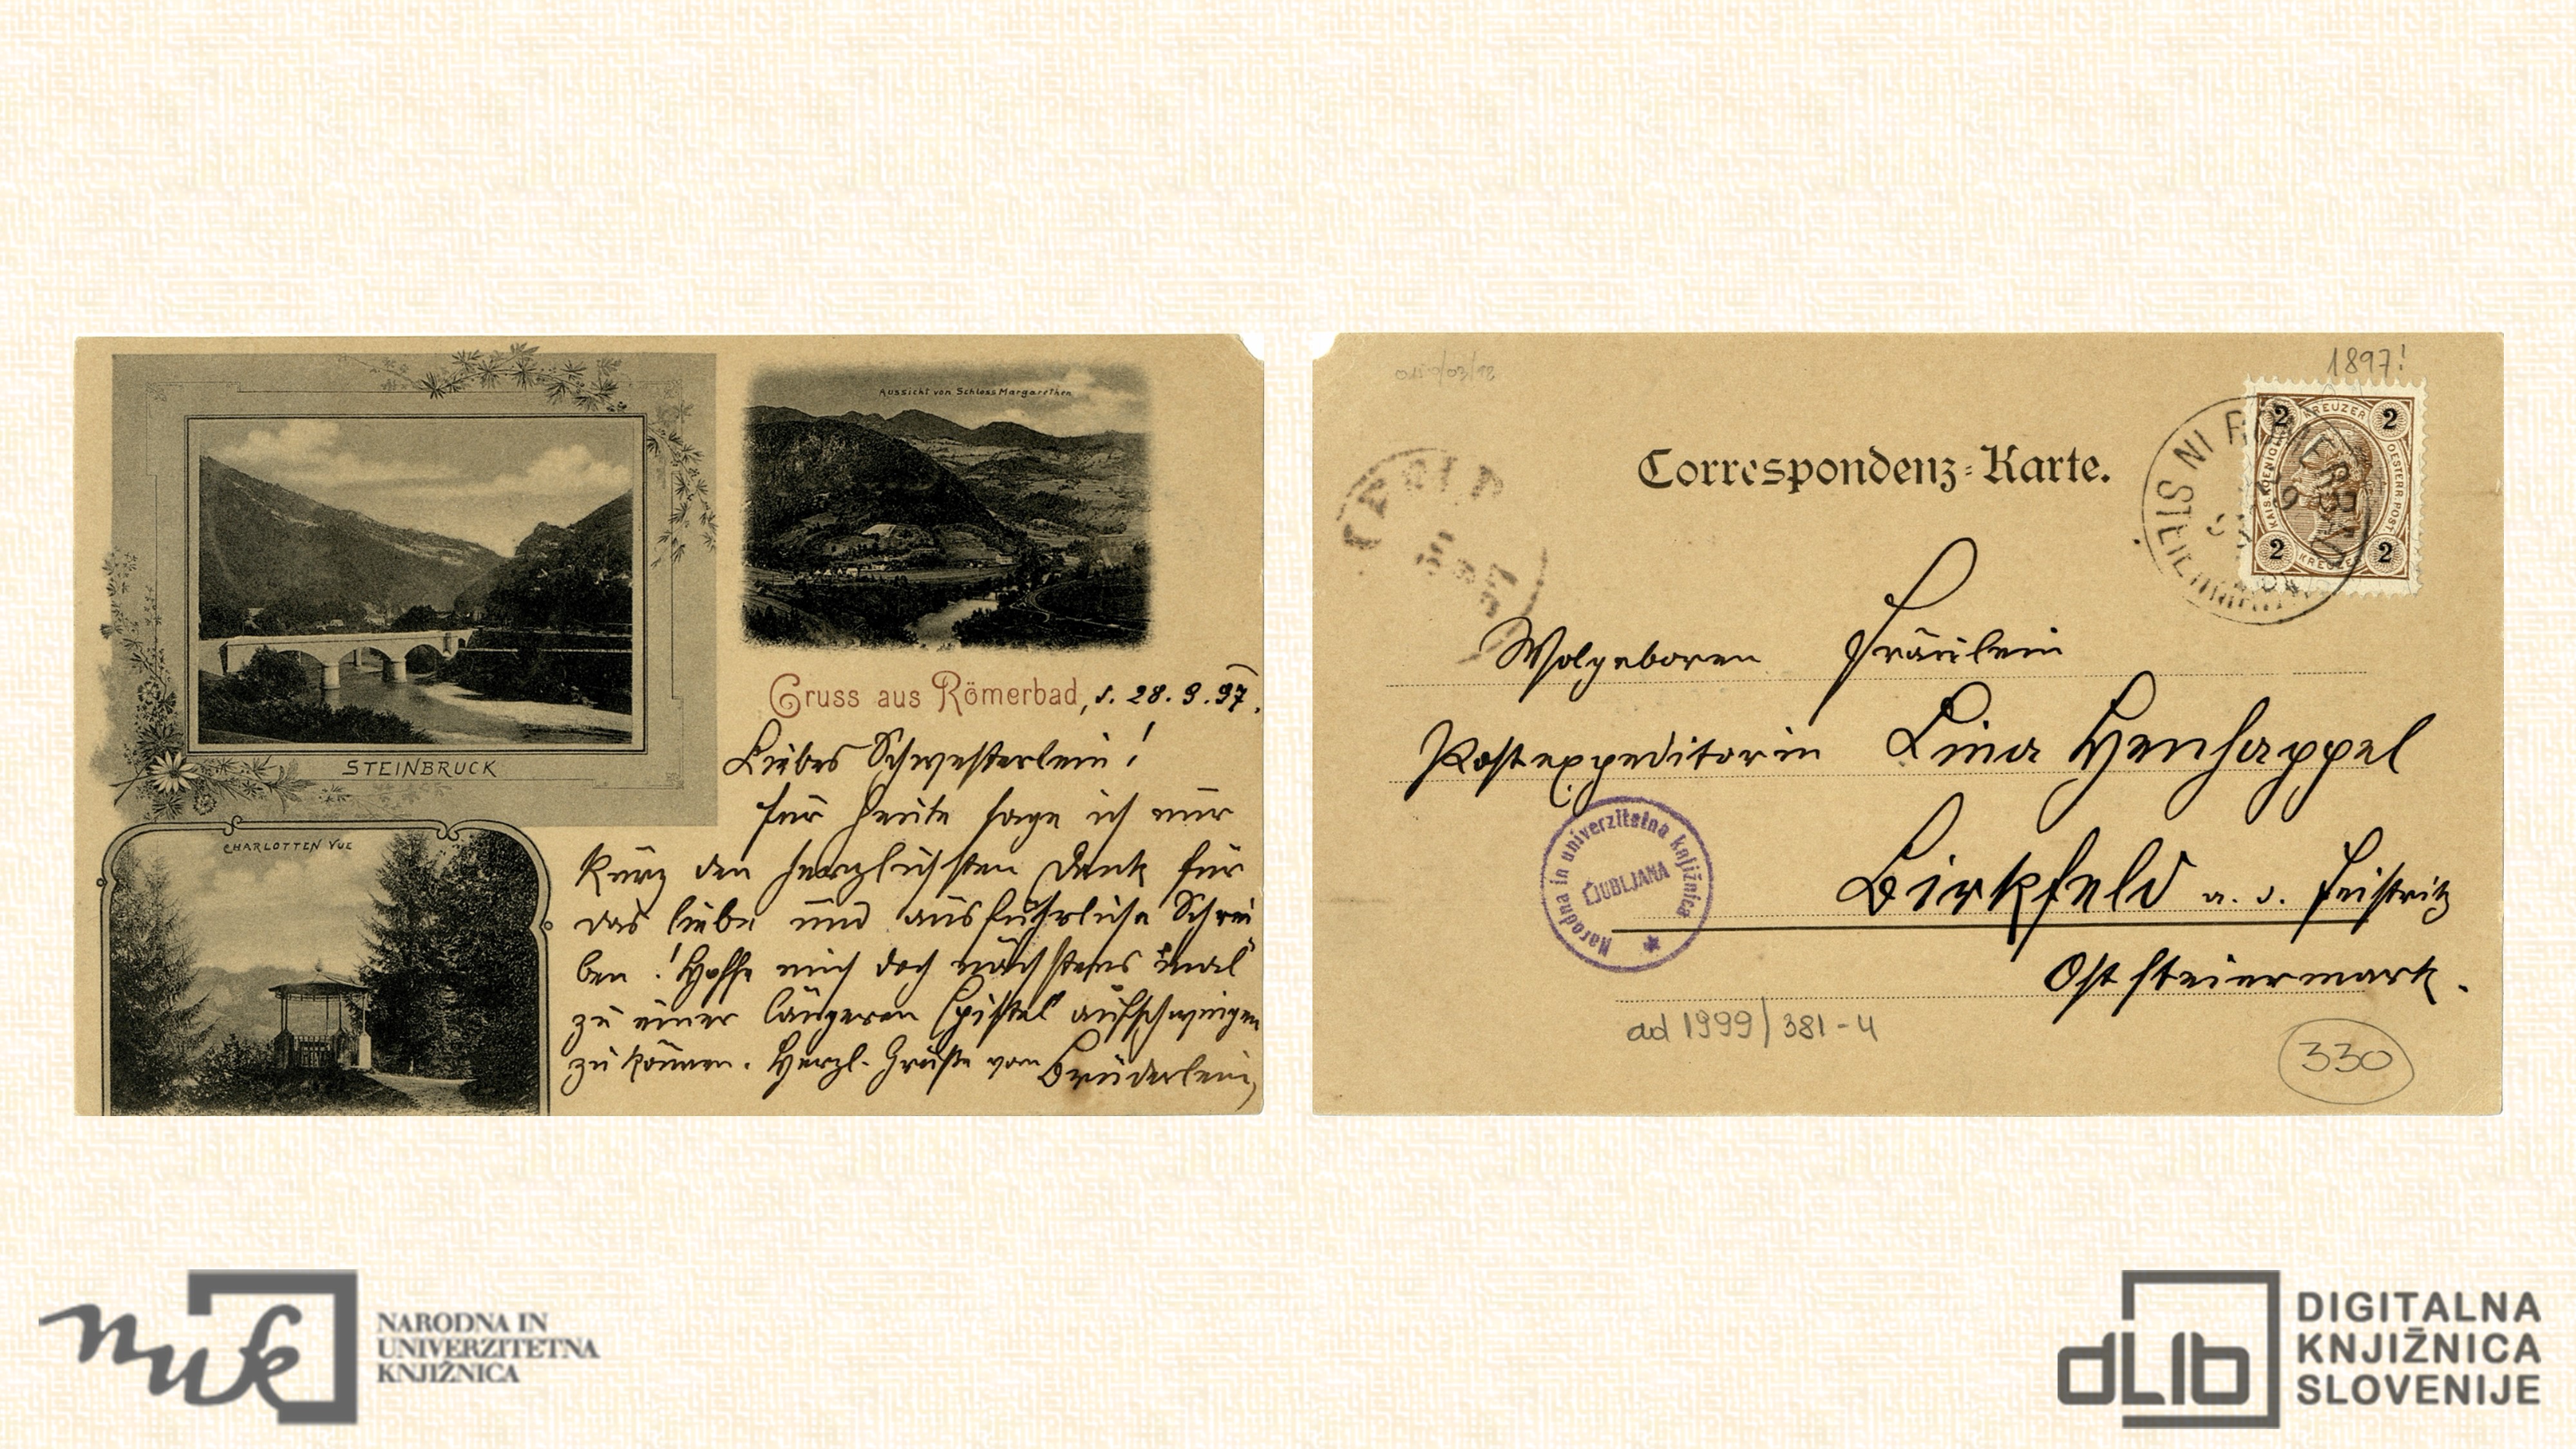 Aussicht von Schloss Margarethen
STEINBRUCK
CHARLOTTEN VUE
Gruss aus Römerbad, d. 28.9.97.
Liebes Schwesterlein!
Für heute sage ich nur
kurz den herzlichsten Dank für
das liebe und ausführliche Schrei
ben! Hoffe mich doch nächstens 'mal
zu einer längeren Epistel aufschwingen
zu können. Herzl. Grüße vom Brüderlein
1897!
Correspondenz-Karte.
2 KREUZER 2
KAIS. KOENIGL. OESTERR. POST
2 KREUZER 2
Wolgeboren Fräulein
Postexpeditorin Lina Henhappel
Birkfeld a. d. Feistritz
Oststeiermark.
Narodna in univerzitetna knjižnica
LJUBLJANA
ad 1999/381-4
330
nuk
NARODNA IN
UNIVERZITETNA
KNJIŽNICA
dLib
DIGITALNA
KNJIŽNICA
SLOVENIJE